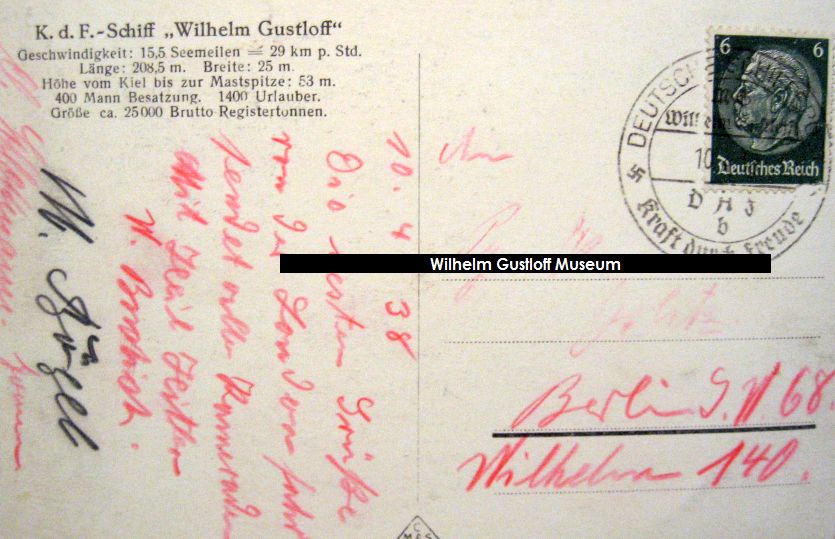 K. d. F.-Schiff „Wilhelm Gustloff“
Geschwindigkeit: 15,5 Seemeilen = 29 km p. Std.
Länge: 208,5 m. Breite: 25 m.
Höhe vom Kiel bis zur Mastspitze: 53 m.
400 Mann Besatzung. 1400 Urlauber.
Größe ca. 25000 Brutto-Registertonnen.
10. 4. 38
Die besten Grüße
von der Londonfahrt
sendet allen Kameraden
Mit Heil Hitler
W.
6 6
Deutsches Reich
DEUTSCHE
Wilhelm
10
D A F
b
Kraft durch Freude
An
Wilhelm Gustloff Museum
Berlin S.W. 68
Wilhelm 140.